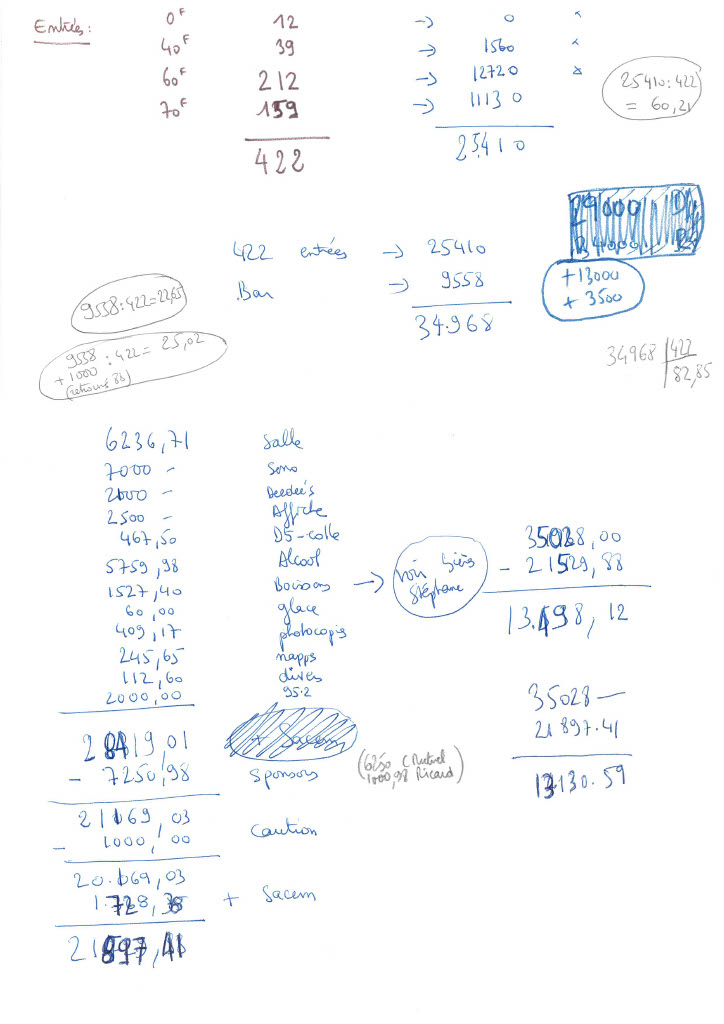 Entrées : 0F 12 → 0 ×
40F 39 → 1560 ×
60F 212 → 12720 ×
70F 159 → 11130
422 25410
25410 : 422
= 60,21
29000
34000
+13000
+ 3500
422 entrées → 25410
Bar → 9558
34.968
9558 : 422 = 22,65
9558 : 422 = 25,02
+ 1000
(retrouvé 88)
34968 | 422
82,85
6236,71 Salle
7000 – Sono
2000 – Deedee's
2500 – Affiche
467,50 DS-colle
5759,98 Alcool
1527,40 Boissons →
60,00 glace
409,17 photocopies
245,65 napps
112,60 divers
2000,00 95.2
voir
Stéphane
35028,00
– 21529,88
13.498,12
28419,01 + Sacem
– 7250,98 Sponsors
(6250 C Mutuel
1000,98 Ricard)
21169,03
– 1000,00 Caution
20.169,03
1.728,38 + Sacem
21897,41
35028 —
21897.41
13130.59